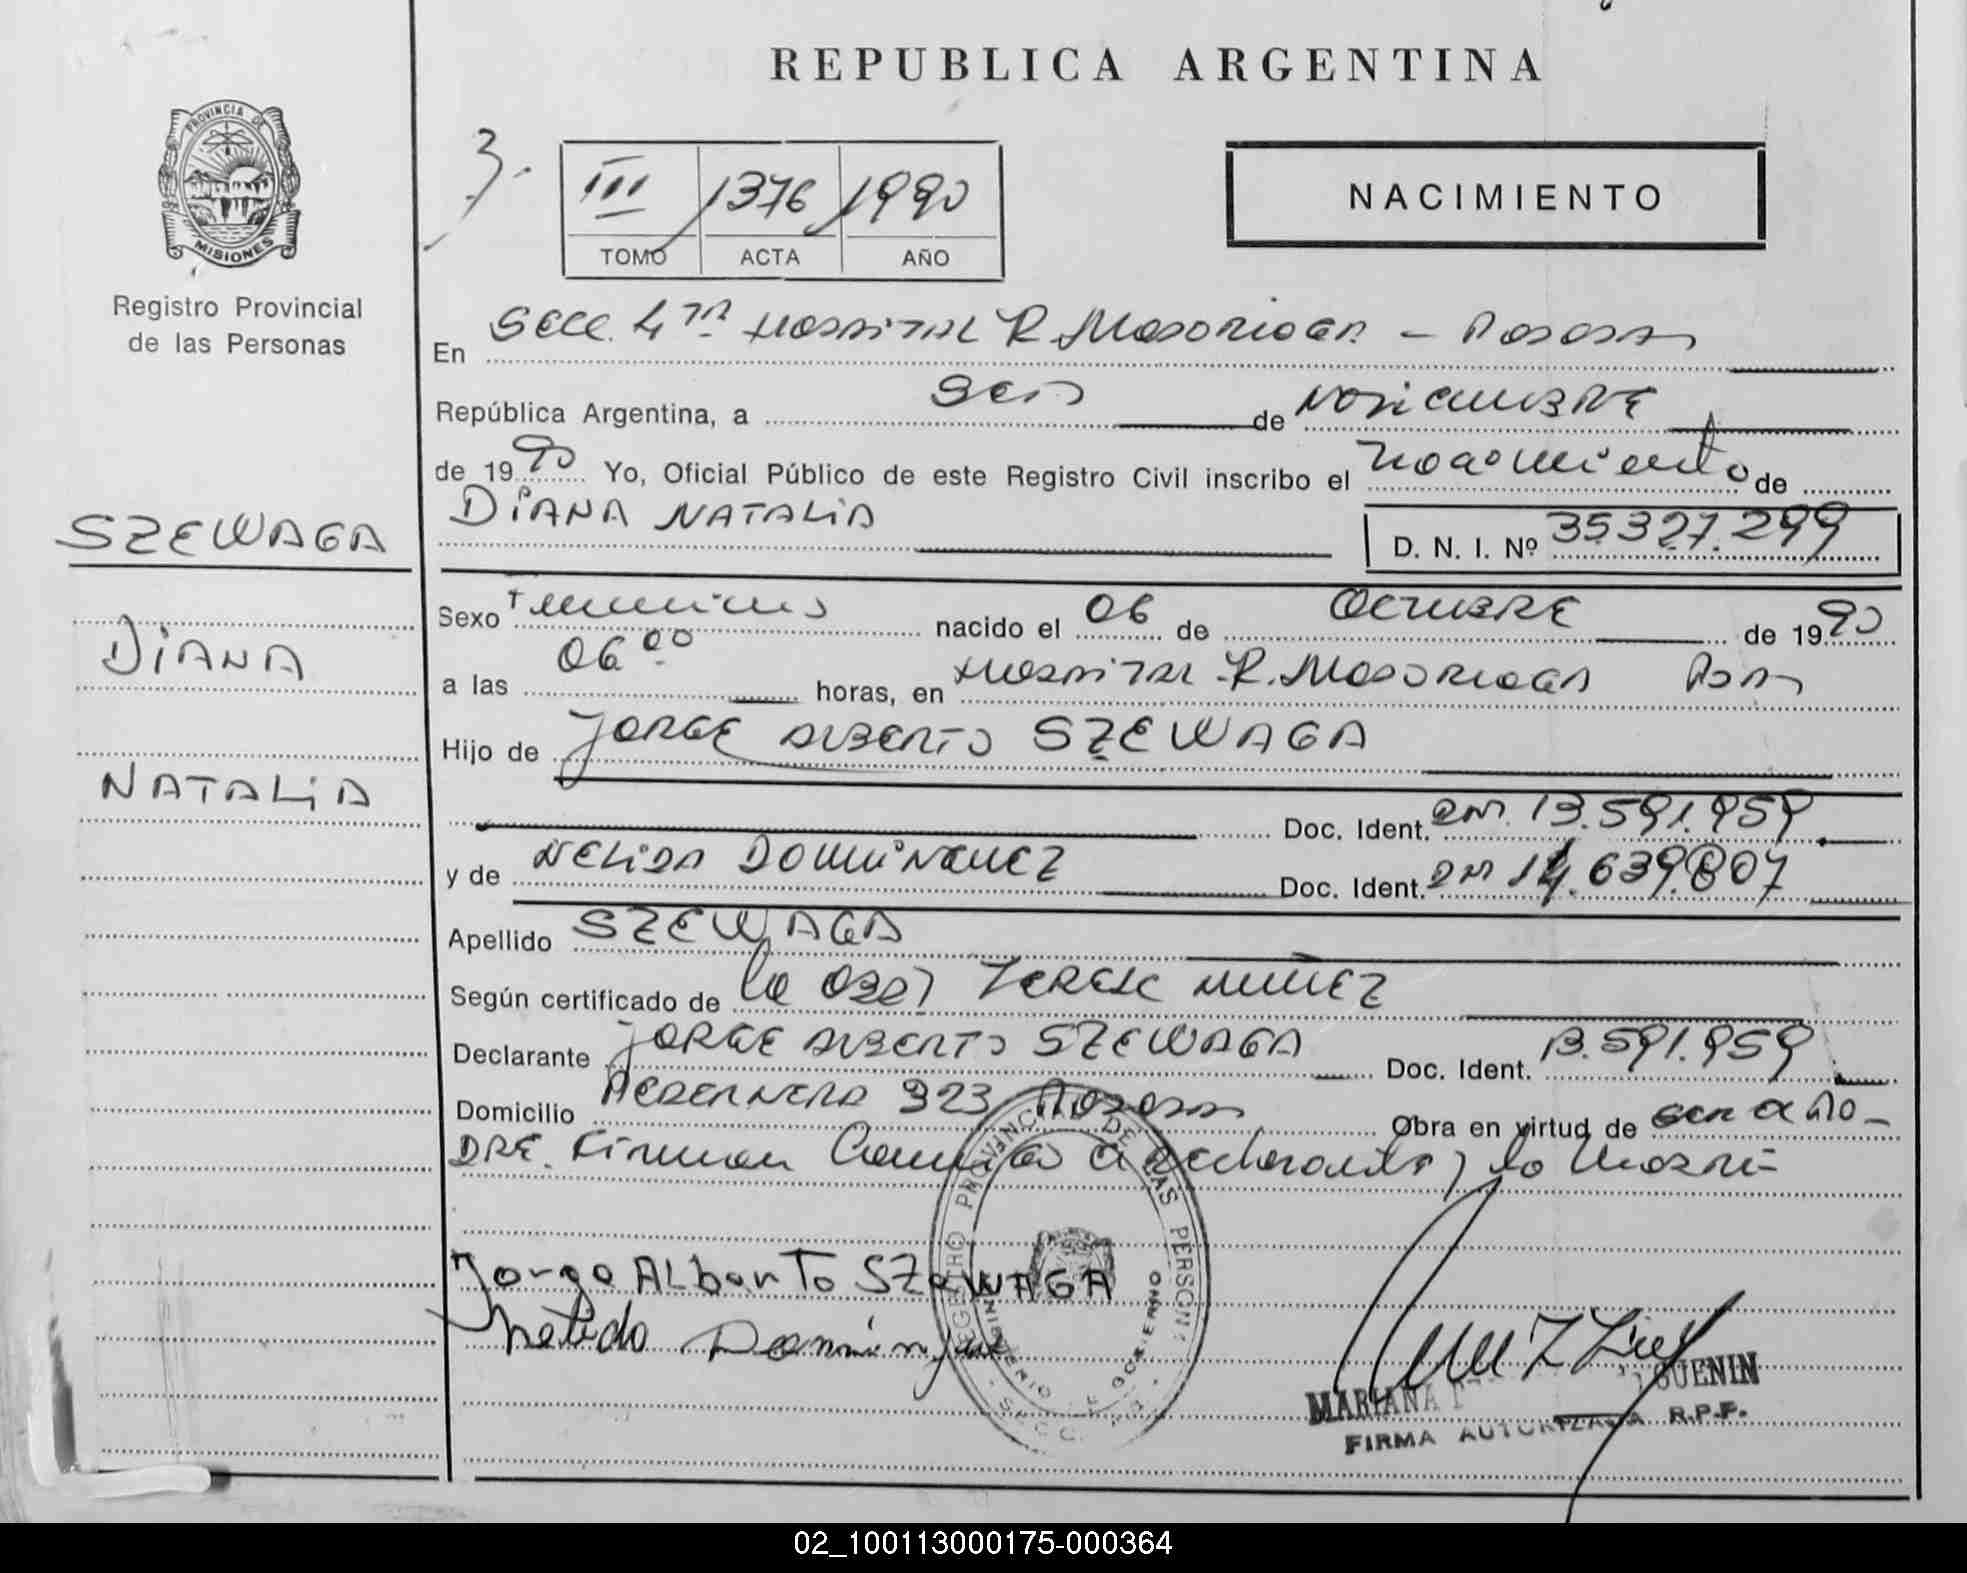 REPUBLICA ARGENTINA
PROVINCIA DE
MISIONES
Registro Provincial
de las Personas
3.
III 1376 1990
TOMO ACTA AÑO
NACIMIENTO
En Secc. 4TA Hospital R. Madariaga - Posadas
República Argentina, a Seis de NOViEMBRE
de 1990 Yo, Oficial Público de este Registro Civil inscribo el nacimiento de
DiANA NATALiA
D. N. I. Nº 35.327.299
SZEWAGA
DiANA
NATALiA
Sexo Femenino nacido el 06 de OCTUBRE de 1990
a las 06 00 horas, en Hospital R. Madariaga Pdas
Hijo de JORGE ALBERTO SZEWAGA
Doc. Ident. DNI 13.591.959
y de NELiDA DOMiNGUEZ Doc. Ident. DNI 14.639.807
Apellido SZEWAGA
Según certificado de la Obst
Declarante JORGE ALBERTO SZEWAGA Doc. Ident. 13.591.959
Domicilio 323 Posadas Obra en virtud de ser el PA-
DRE. Firman Conmigo el declarante y la
Jorge ALberTo SZeWAGA
Nelida Dominguez
REGISTRO PROVINCIAL DE LAS PERSONAS
MINISTERIO DE GOBIERNO
MARIANA GUENIN
FIRMA AUTORIZADA R.P.P.
02_100113000175-000364